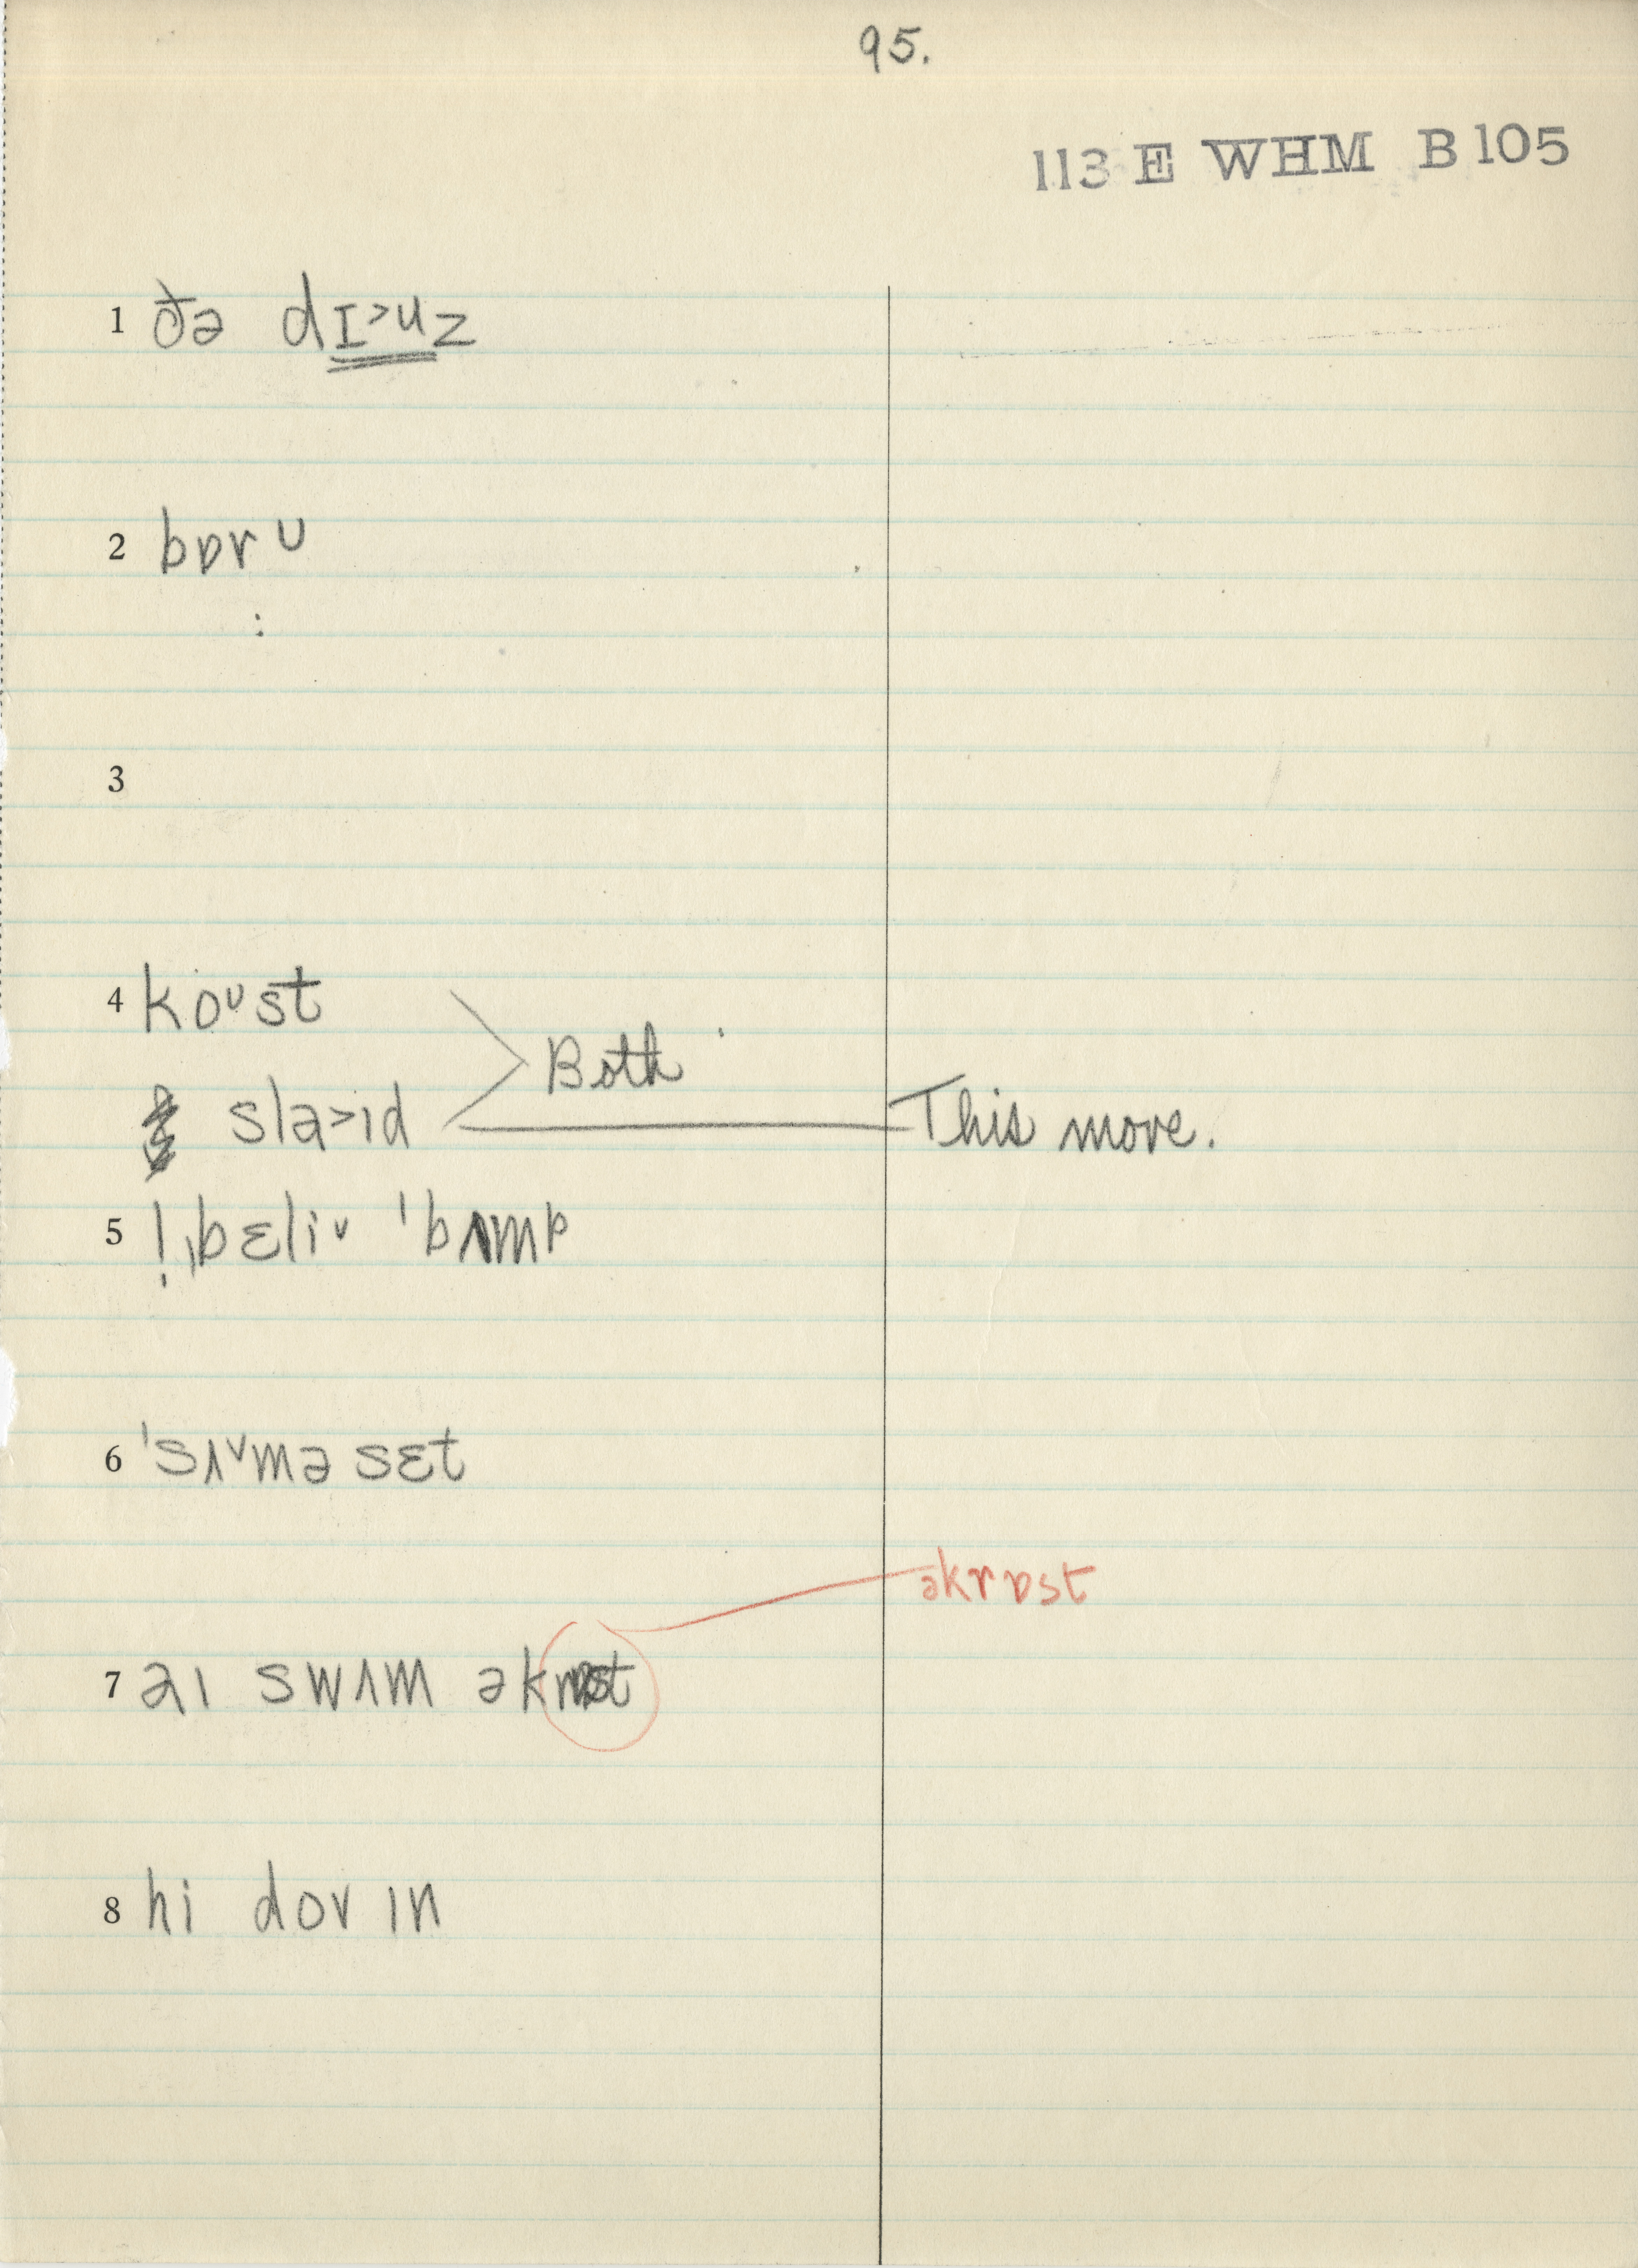 95.
113 E WHM B 105
1 ðə dɪ˃uz
2 bɒr ᴜ
3
4 koᶷst
Both
sla˃ɪd This move.
5 ! ˌbɛliᵛ ˈbʌmp
6 ˈsʌᵛmə sɛt
əkrɒst
7 aɪ swʌm əkrɒst
8 hi dov ɪn